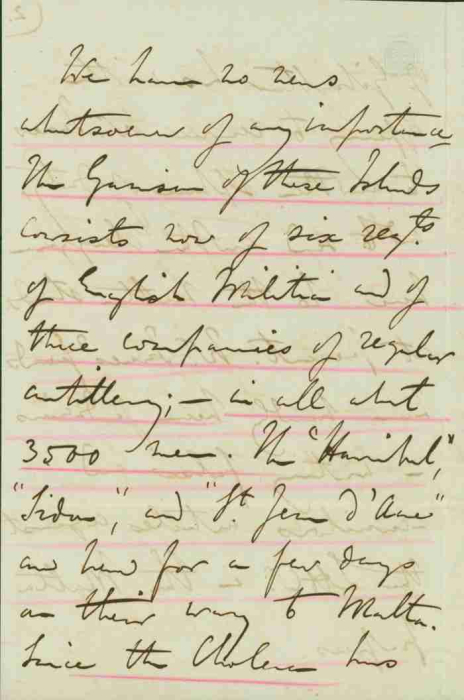 We have no news
whatsoever of any importance
The Garrison of these Islands
consists now of six regts.
of English Militia and of
three companies of regular
artillery; — in all about
3500 men. The "Hannibal,"
"Sidon", and "St. Jean d'Acre"
are here for a few days
on their way to Malta.
Since the Cholera has